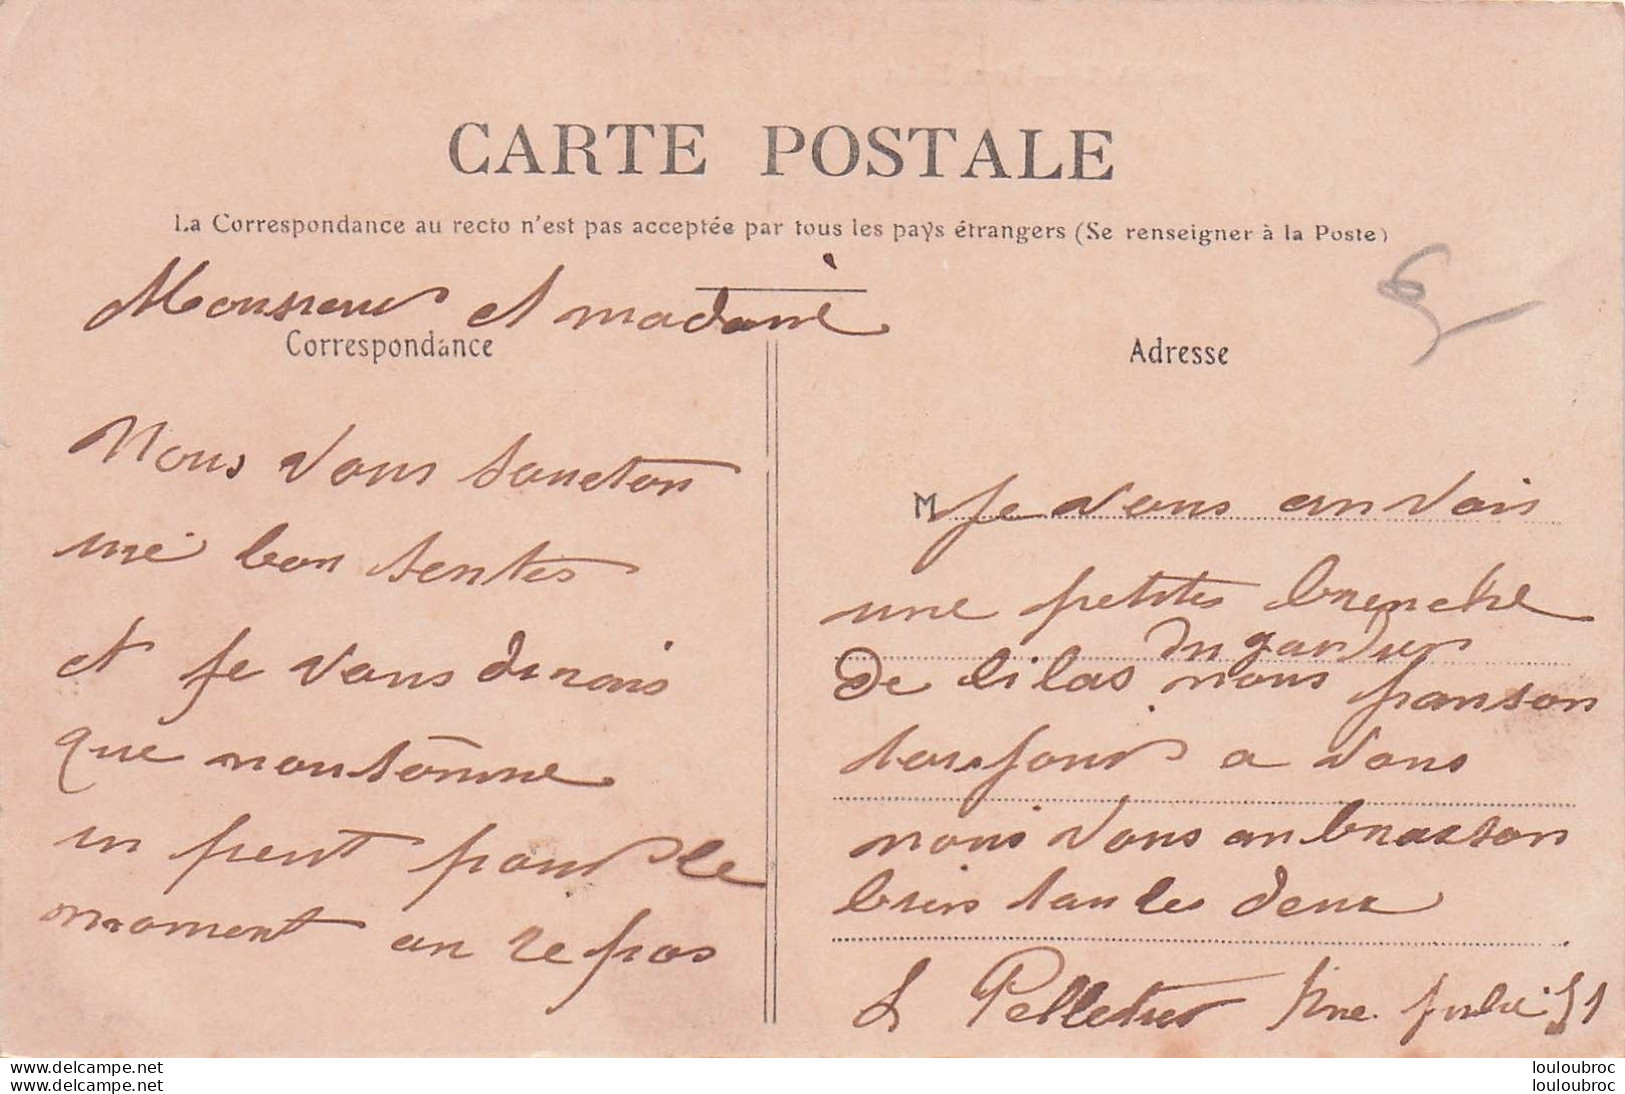 CARTE POSTALE
La Correspondance au recto n'est pas acceptée par tous les pays étrangers (Se renseigner à la Poste)
Monsieur et madame
Correspondance
Nous vous
une bon sentes
et je vous dirais
que nousomme
un peut pour le
moment en repos
Adresse
M
Je vous anvois
une petites brenche
du gardin
De lilas nous panson
toujour a vous
nous vous anbrasson
bien tou les deux
L Pelletier Rue 51
louloubroc
louloubroc
delcampe.net
delcampe.net